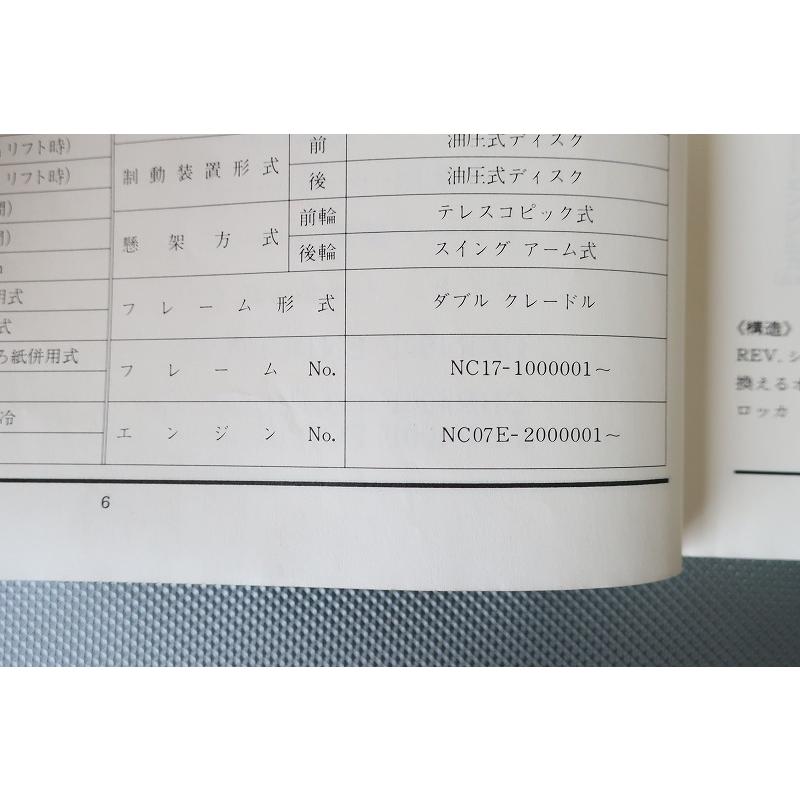 リフト時)
前
油圧式ディスク
制動装置形式
リフト時)
後
油圧式ディスク
前輪
テレスコピック式
懸架方式
後輪
スイング アーム式
用式
フレーム形式
ダブル クレードル
式
ろ紙併用式
フレーム No.
NC17-1000001~
冷
エンジン No.
NC07E-2000001~
6
《構造》
REV.シ
換える
ロッカ